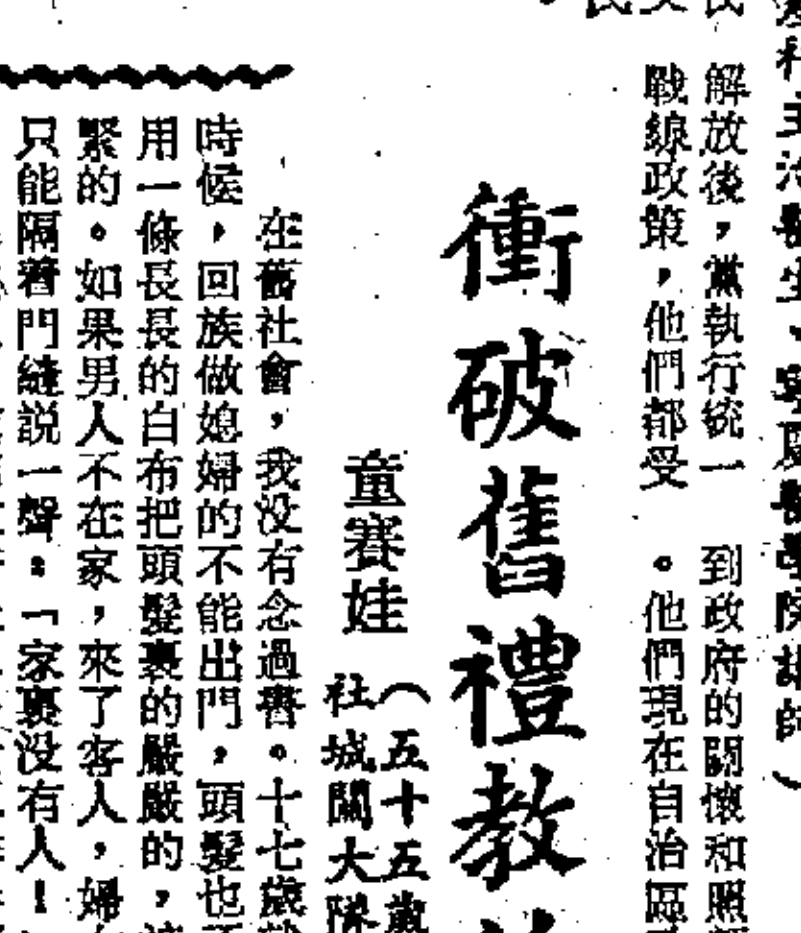 解放後，黨執行統一
戰線政策，他們都受
到政府的關懷和照
。他們現在自治區
衝破舊禮教
童賽娃
（五十五歲
社城關大隊
在舊社會，我没有念過書。十七歲
時候，回族做媳婦的不能出門，頭髮也
用一條長長的白布把頭髮裹的嚴嚴的，
緊的。如果男人不在家，來了客人，婦
只能隔着門縫説一聲：「家裏没有人！